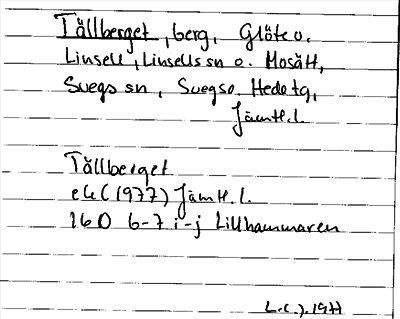 Tällberget, berg, Glöte o.
Linsell, Linsells sn o. Mosätt,
Svegs sn, Svegs o. Hede tg,
Jämtl. l.
Tällberget
ek (1977) Jämtl. l.
16D 6-7 i-j Lillhammaren
L.C.J. 1977